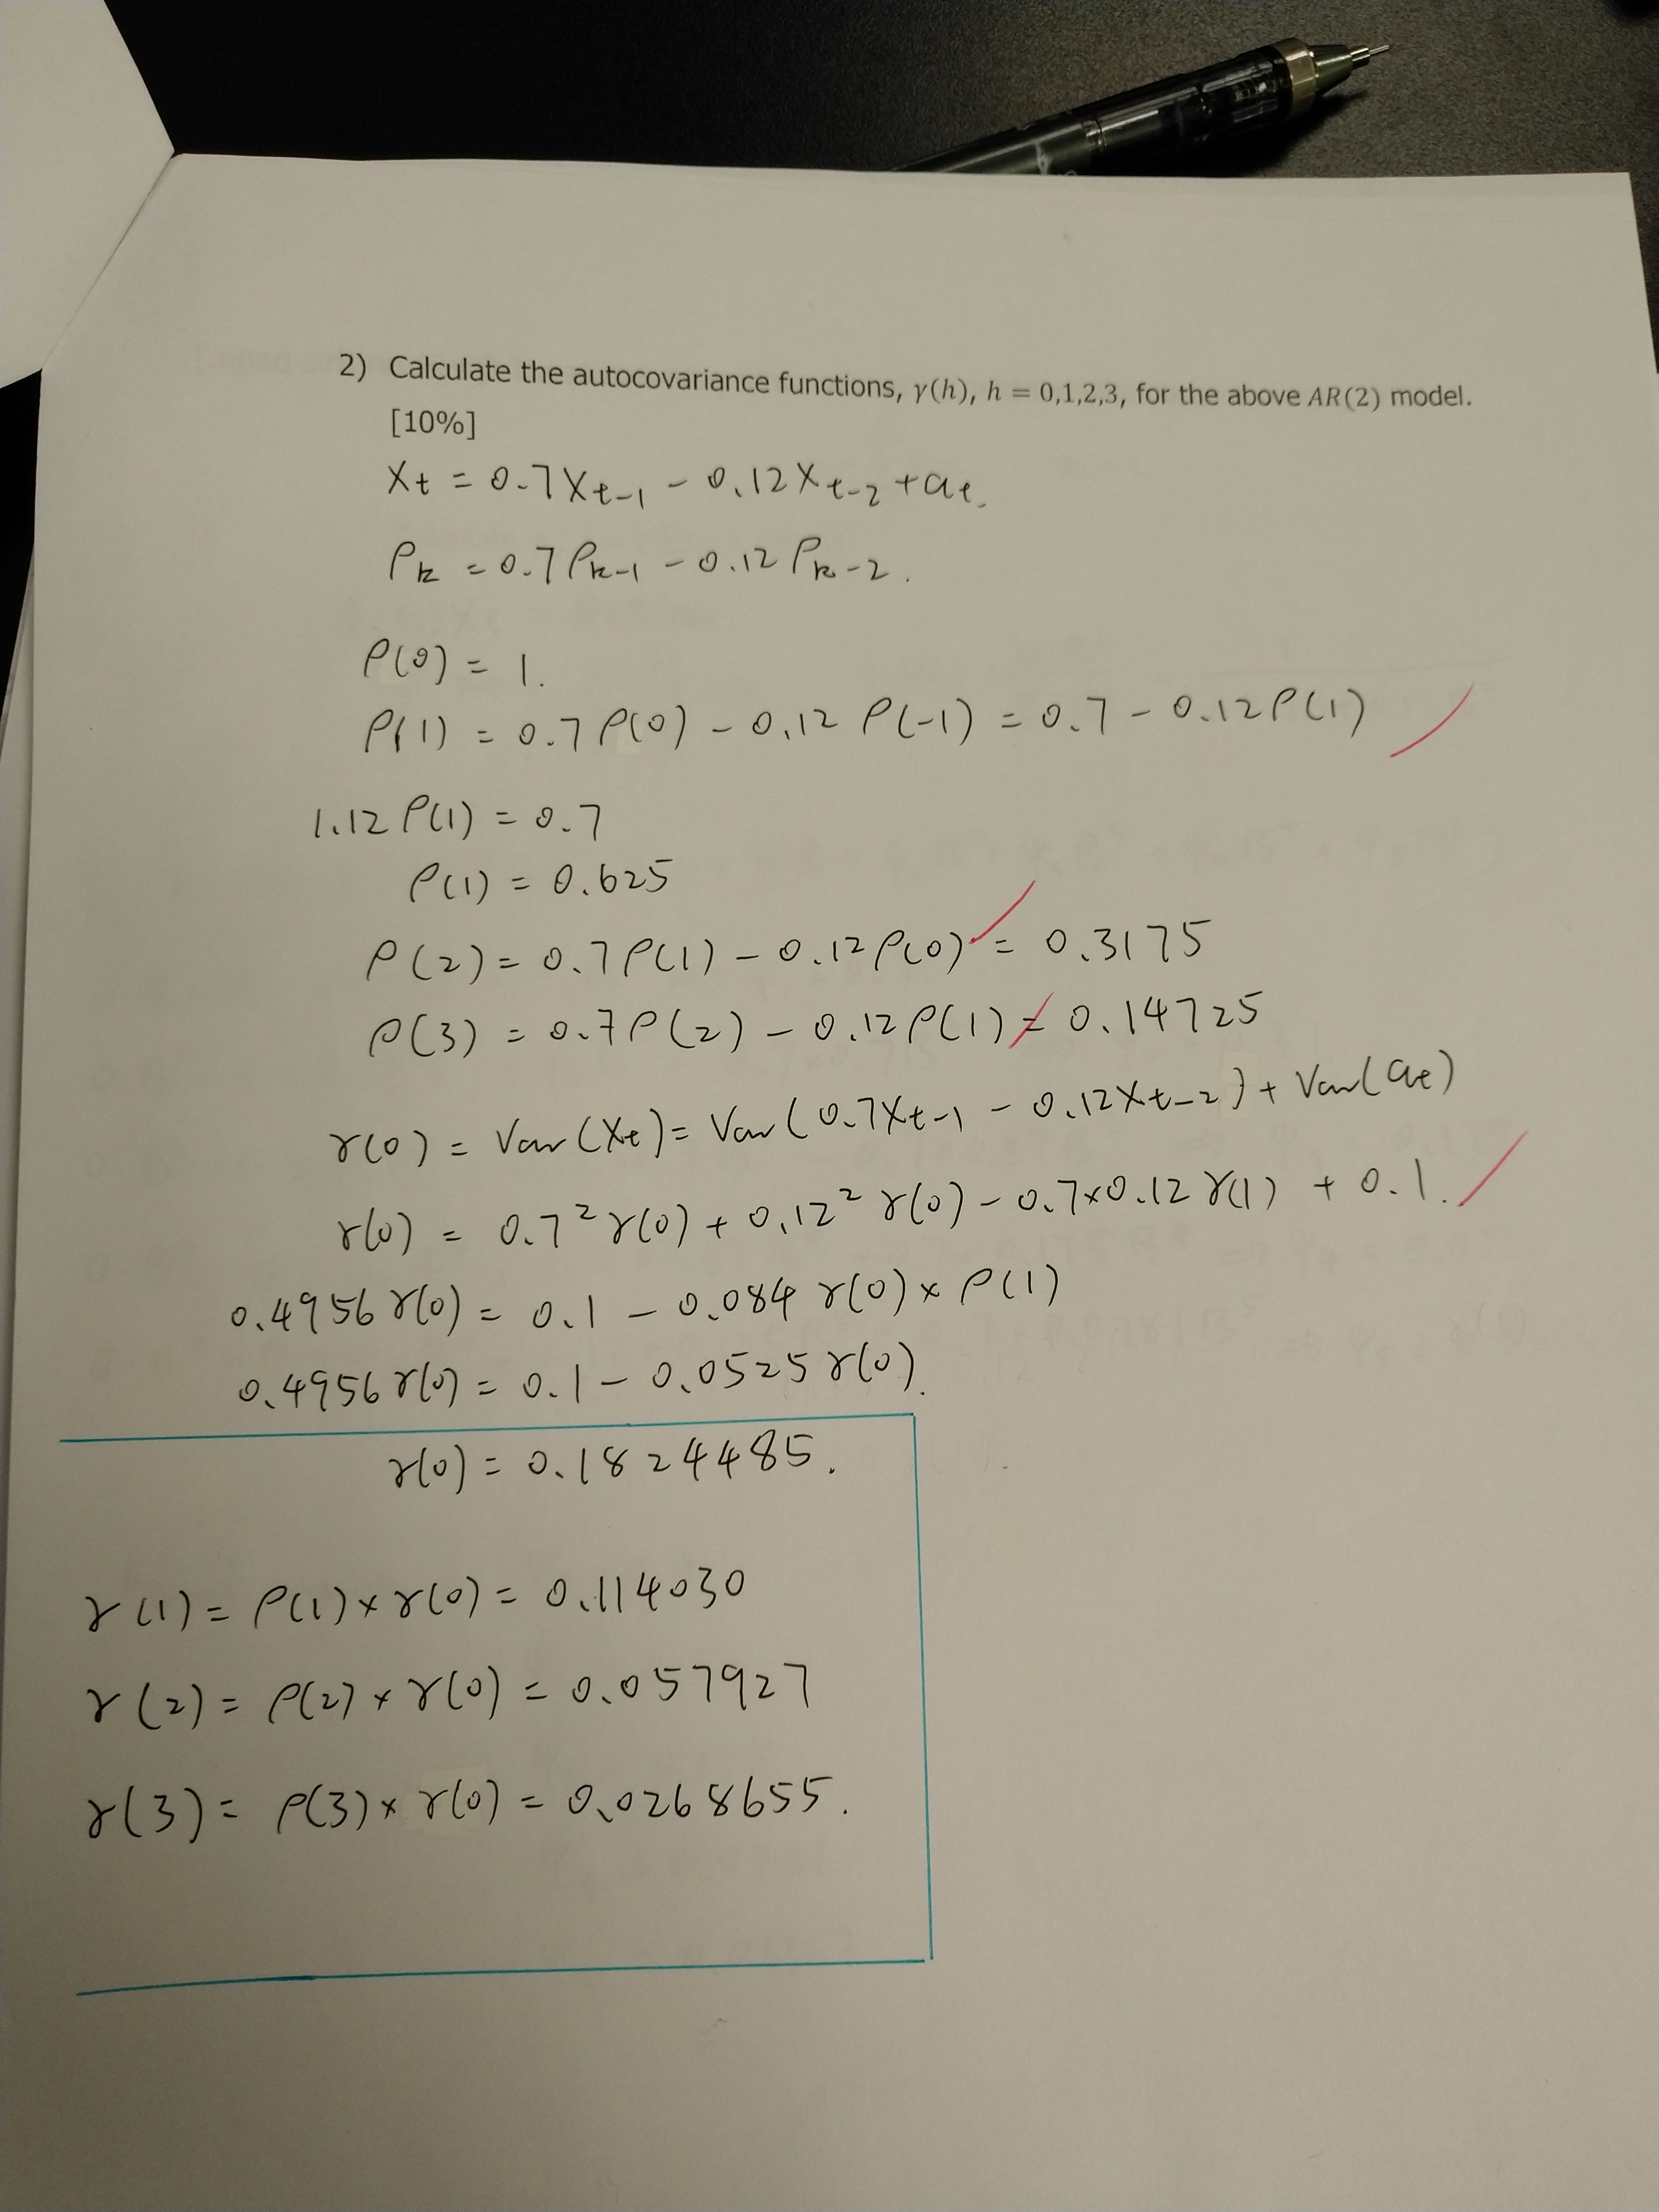 2) Calculate the autocovariance functions, γ(h), h = 0,1,2,3, for the above AR(2) model.
[10%]
Xt = 0.7Xt-1 - 0.12Xt-2 + at.
ρk = 0.7ρk-1 - 0.12ρk-2.
ρ(0) = 1.
ρ(1) = 0.7ρ(0) - 0.12 ρ(-1) = 0.7 - 0.12ρ(1)
1.12ρ(1) = 0.7
ρ(1) = 0.625
ρ(2) = 0.7ρ(1) - 0.12ρ(0) = 0.3175
ρ(3) = 0.7ρ(2) - 0.12ρ(1) = 0.14725
γ(0) = Var(Xt) = Var(0.7Xt-1 - 0.12Xt-2) + Var(at)
γ(0) = 0.7² γ(0) + 0.12² γ(0) - 0.7×0.12 γ(1) + 0.1.
0.4956 γ(0) = 0.1 - 0.084 γ(0) × ρ(1)
0.4956 γ(0) = 0.1 - 0.0525 γ(0).
γ(0) = 0.1824485.
γ(1) = ρ(1) × γ(0) = 0.114030
γ(2) = ρ(2) × γ(0) = 0.057927
γ(3) = ρ(3) × γ(0) = 0.0268655.